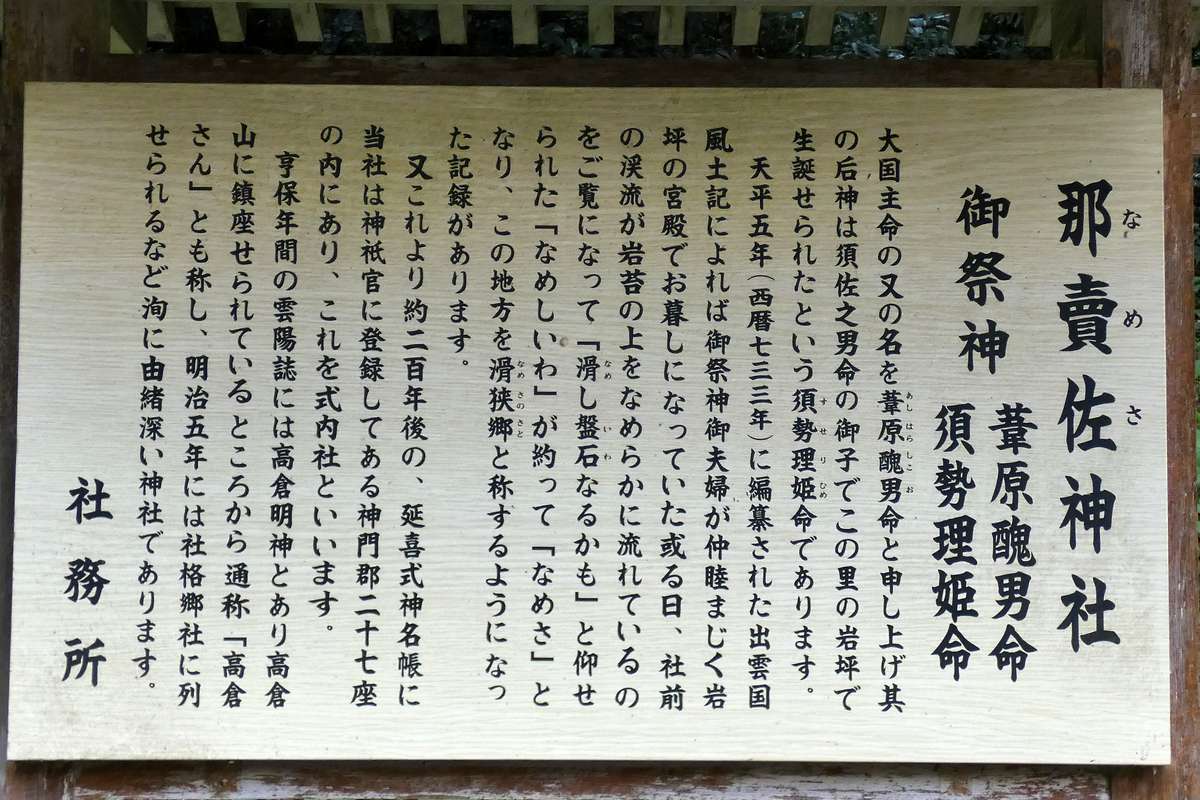 那賣佐神社
なめさ
御祭神
葦原醜男命
須勢理姫命
大国主命の又の名を葦原醜男命と申し上げ其
あしはらしこお
の后神は須佐之男命の御子でこの里の岩坪で
生誕せられたという須勢理姫命であります。
すせりひめ
天平五年(西暦七三三年)に編纂された出雲国
風土記によれば御祭神御夫婦が仲睦まじく岩
坪の宮殿でお暮しになっていた或る日、社前
の渓流が岩苔の上をなめらかに流れているの
をご覧になって「滑し盤石なるかも」と仰せ
なめいわ
られた「なめしいわ」が約って「なめさ」と
なり、この地方を滑狭郷と称するようになっ
なめさのさと
た記録があります。
又これより約二百年後の、延喜式神名帳に
当社は神祇官に登録してある神門郡二十七座
の内にあり、これを式内社といいます。
亨保年間の雲陽誌には高倉明神とあり高倉
山に鎮座せられているところから通称「高倉
さん」とも称し、明治五年には社格郷社に列
せられるなど洵に由緒深い神社であります。
社務所